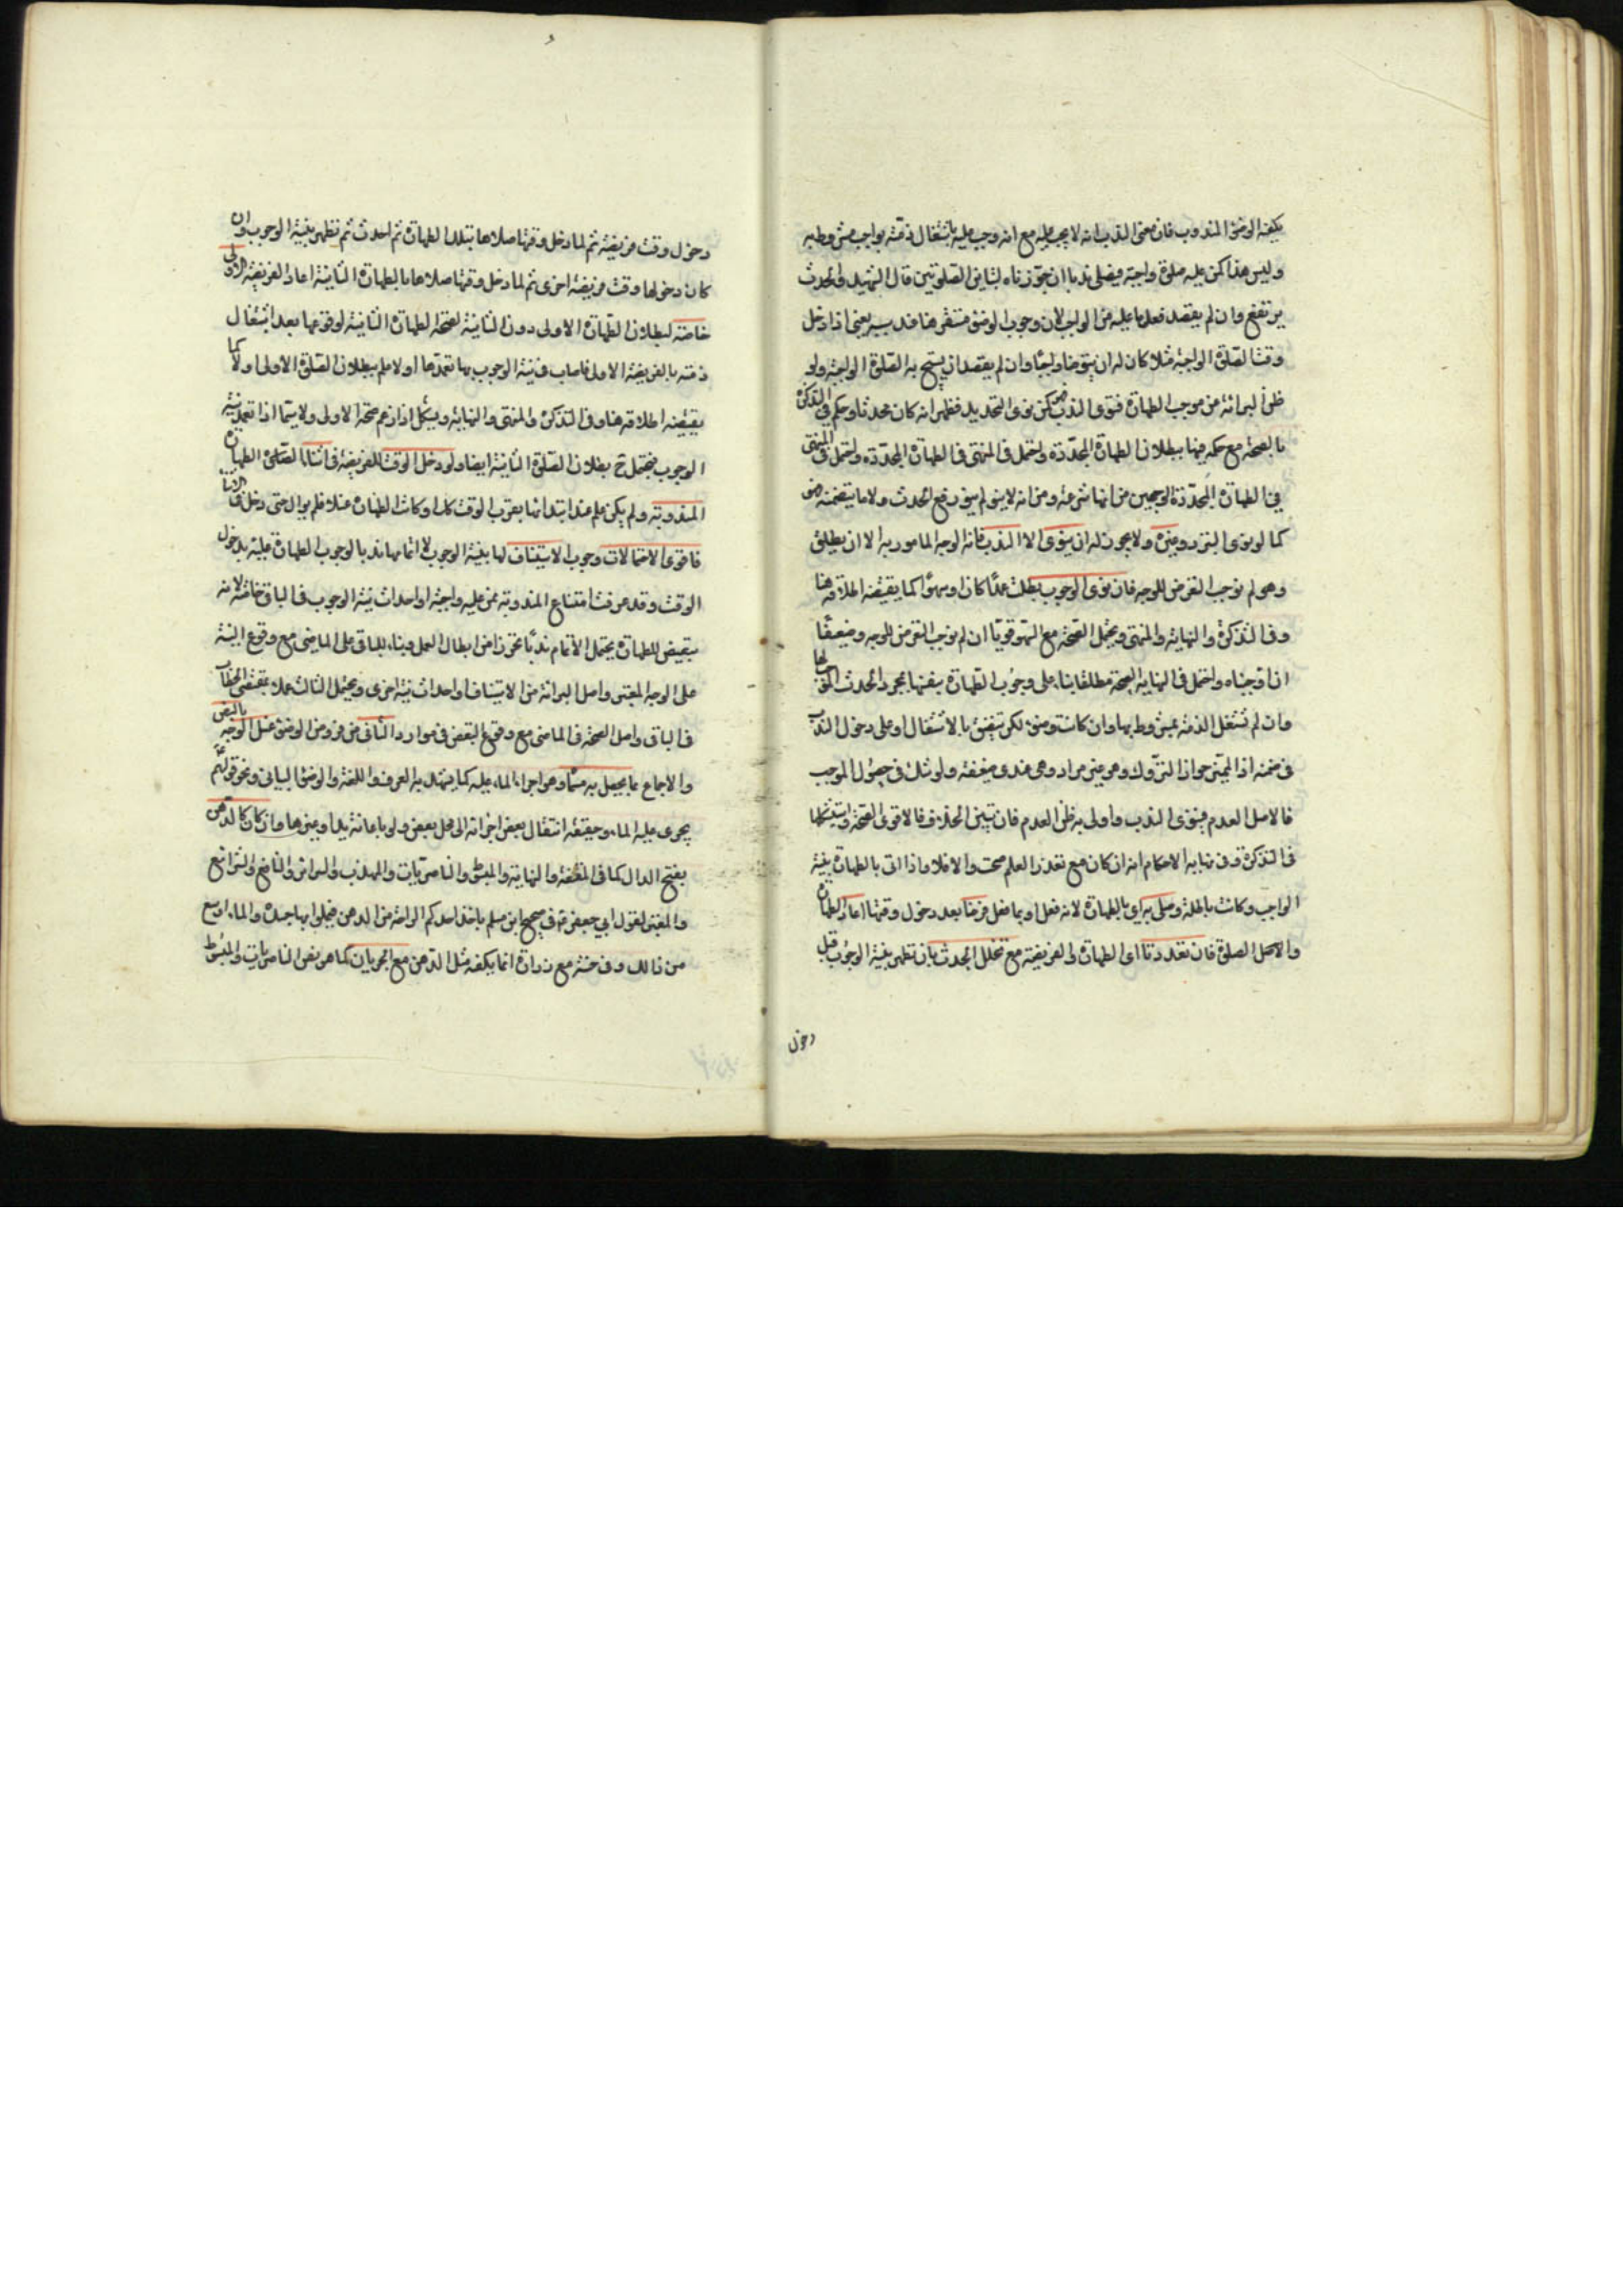 يكفيه الوضوء المندوب فان معنى الندب انه لا يجب عليه مع انه وجب عليه باشتغال ذمته بواجب مشروط به
وليس هذا كمن عليه صلوة واجبة فيصلي ندبا ان جوزناه لتباين الصلوتين قال الشهيد والحدث
يرتفع وان لم يقصد فعل ما عليه من الواجب لان وجوب الوضوء مستقر هنا عند سببه يعني اذا دخل
وقت الصلوة الواجبة مثلا كان له ان يتوضا واجبا وان لم يقصد ان يستبيح به الصلوة الواجبة ولو
ظن البرائة من موجب الطهارة فنوى الندب كمن نوى التجديد فظهر انه كان محدثا وحكم في التذكرة
بالصحة مع حكمه فيها ببطلان الطهارة المجددة واحتمل في المنتهى في الطهارة المجددة واحتمل في المنتهى
في الطهارة المجددة الوجهين من انها شرعية ومن انه لا ينو لم ينو رفع الحدث ولا ما يتضمنه
كما لو نوى التبرد وغيره ولا يجوز له ان ينوى الا الندب فانه الوجه المامور به الا ان يطلق
وهو لم يوجب التعرض للوجه فان نوى الوجوب بطلت عمدا كان او سهوا كما يقتضيه اطلاقه هنا
وفي التذكرة والنهاية والمنتهى ويحتمل الصحة مع السهو قويا ان لم يوجب التعرض للوجه وضعيفا
ان اوجبناه واحتمل في النهاية الصحة مطلقا بناء على وجوب الطهارة بنفسها بمجرد الحدث الموجب لها
وان لم تشتغل الذمة بمشروط بها وان كانت وجوبه تتضيق بالاشتغال او على دخول الندب
في ضمنه اذ المميز جواز التروك وهو غير مراد وهى عندى ضعيفة ولو شك في حصول الموجب
فالاصل العدم فينوى الندب واولى به ظن العدم فان تبين الخلاف فالاقوى الصحة واستشكلها
في التذكرة وفي نهاية الاحكام انه ان كان مع تعذر العلم صحت والا فلا واذا اتى بالطهارة بنية
الواجب وكانت باطلة وصلى به اي بالطهارة لانه فعل او بما فعل فرضا بعد دخول وقتها اعاد الطهارة
والاصل الصلوة فان تعددتا اى الطهارة والفريضة مع تخلل الحدث بان تطهر بنية الوجوب قبل
دخول
دخول وقت فريضة ثم لما دخل وقتها صلاها بتلك الطهارة ثم احدث ثم تطهر بنية الوجوب وان
كان دخولها وقت فريضة اخرى ثم لما دخل وقتها صلاها بالطهارة الثانية اعاد الفريضة الاولى
خاصة لبطلان الطهارة الاولى دون الثانية لصحة الطهارة الثانية لوقوعها بعد اشتغال
ذمته بالفريضة الاولى فاصاب في نية الوجوب بها تعمدها او لا علم ببطلان الصلوة الاولى او لا كما
يقتضيه اطلاقه هنا وفي التذكرة والمنتهى والنهاية ويشكل اذا زعم صحة الاولى ولا سيما اذا تعمد نية
الوجوب فيحتمل ح بطلان الصلوة الثانية ايضا ولو دخل الوقت للفريضة في اثناء الصلوة الطهارة
المندوبة ولم يكن علم عند ابتدائها بقرب الوقت كذا او كانت الطهارة غسلا فلم يوال حتى دخل في الاثناء
فاقوى الاحتمالات وجوب الاستيناف لها بنية الوجوب لا اتمامها ندبا لوجوب الطهارة عليه بدخول
الوقت وقد عرفت امتناع المندوبة ممن عليه واجبة او احداث نية الوجوب في الباقي خاصة لانه
تبعيض للطهارة يحتمل الاتمام ندبا تحرزا من ابطال العمل وبناء للباقي على الماضى مع وقوع النية
على الوجه المعتبر واصل البرائة من الاستيناف او احداث نية اخرى ويحتمل الثالث عملا بمقتضى الخطاب
في الباقي واصل الصحة في الماضى مع وقوع البعض في موارد الثاني من فروض الوضوء غسل الوجه بالنص
والاجماع بما يحصل به مسماه وهو اجراء الماء عليه كما يشهد به العرف واللغة والوضوء البياني ونحو قولهم
يجرى عليه الماء وحقيقته انتقال بعض اجزائه الى محل بعض ولو باعانة يد او غيرها وان كان كالدهن
بفتح الدال كما في المقنعة والنهاية والمبسوط والناصريات والمهذب والسرائر والنافع والشرائع
والمعتبر لقول ابي جعفر ع في صحيح ابن مسلم ياخذ احدكم الراحة من الدهن فيملوا بها جسده والماء اوسع
من ذالك وفي حسنه مع زرارة انما يكفيه مثل الدهن مع الجريان كما هو نص الناصريات والمبسوط